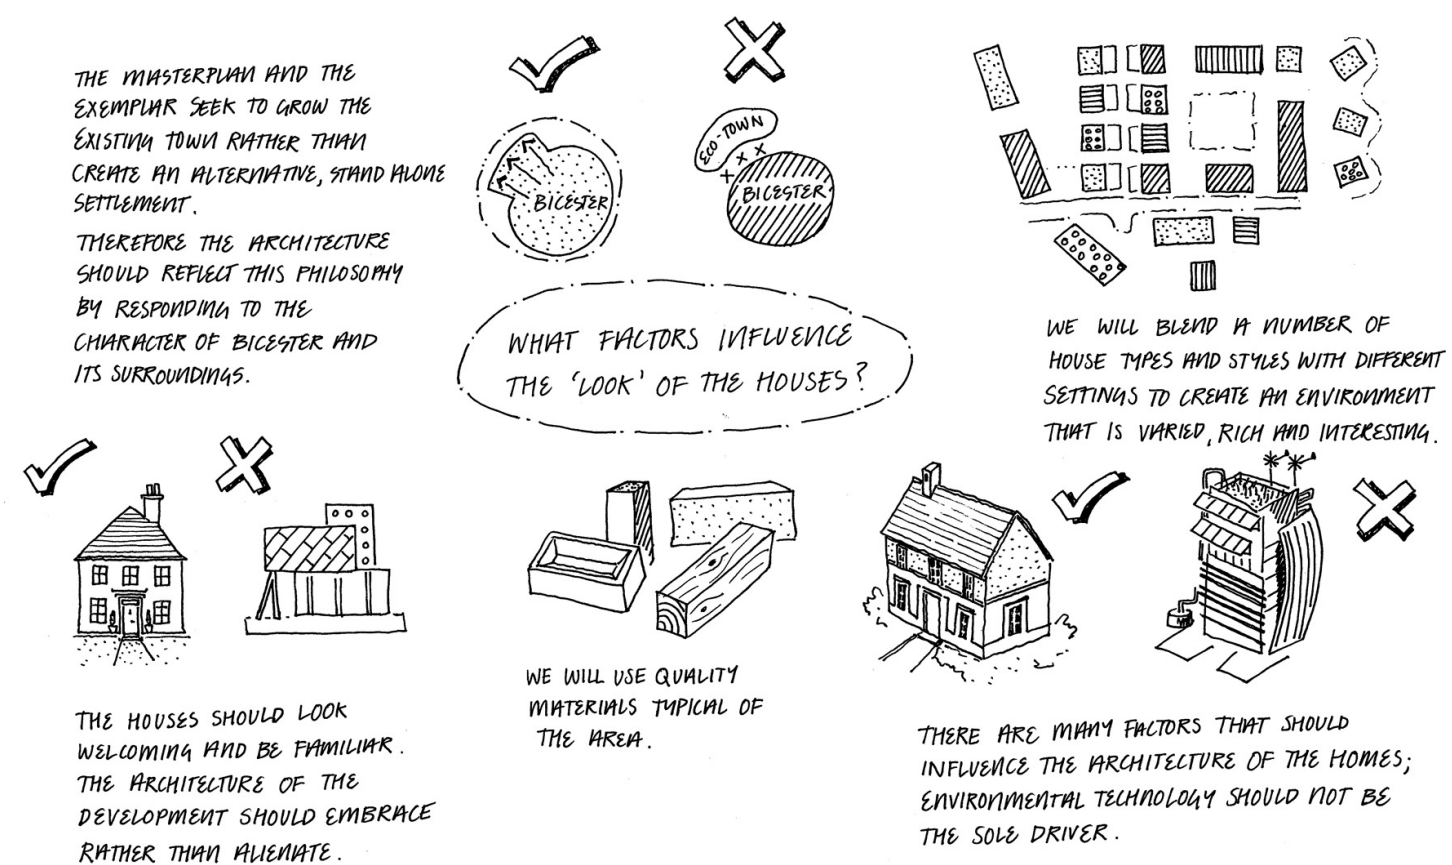 THE MASTERPLAN AND THE
EXEMPLAR SEEK TO GROW THE
EXISTING TOWN RATHER THAN
CREATE AN ALTERNATIVE, STAND ALONE
SETTLEMENT.
THEREFORE THE ARCHITECTURE
SHOULD REFLECT THIS PHILOSOPHY
BY RESPONDING TO THE
CHARACTER OF BICESTER AND
ITS SURROUNDINGS.
BICESTER
ECO-TOWN
BICESTER
WHAT FACTORS INFLUENCE
THE 'LOOK' OF THE HOUSES?
WE WILL BLEND A NUMBER OF
HOUSE TYPES AND STYLES WITH DIFFERENT
SETTINGS TO CREATE AN ENVIRONMENT
THAT IS VARIED, RICH AND INTERESTING.
THE HOUSES SHOULD LOOK
WELCOMING AND BE FAMILIAR.
THE ARCHITECTURE OF THE
DEVELOPMENT SHOULD EMBRACE
RATHER THAN ALIENATE.
WE WILL USE QUALITY
MATERIALS TYPICAL OF
THE AREA.
THERE ARE MANY FACTORS THAT SHOULD
INFLUENCE THE ARCHITECTURE OF THE HOMES;
ENVIRONMENTAL TECHNOLOGY SHOULD NOT BE
THE SOLE DRIVER.